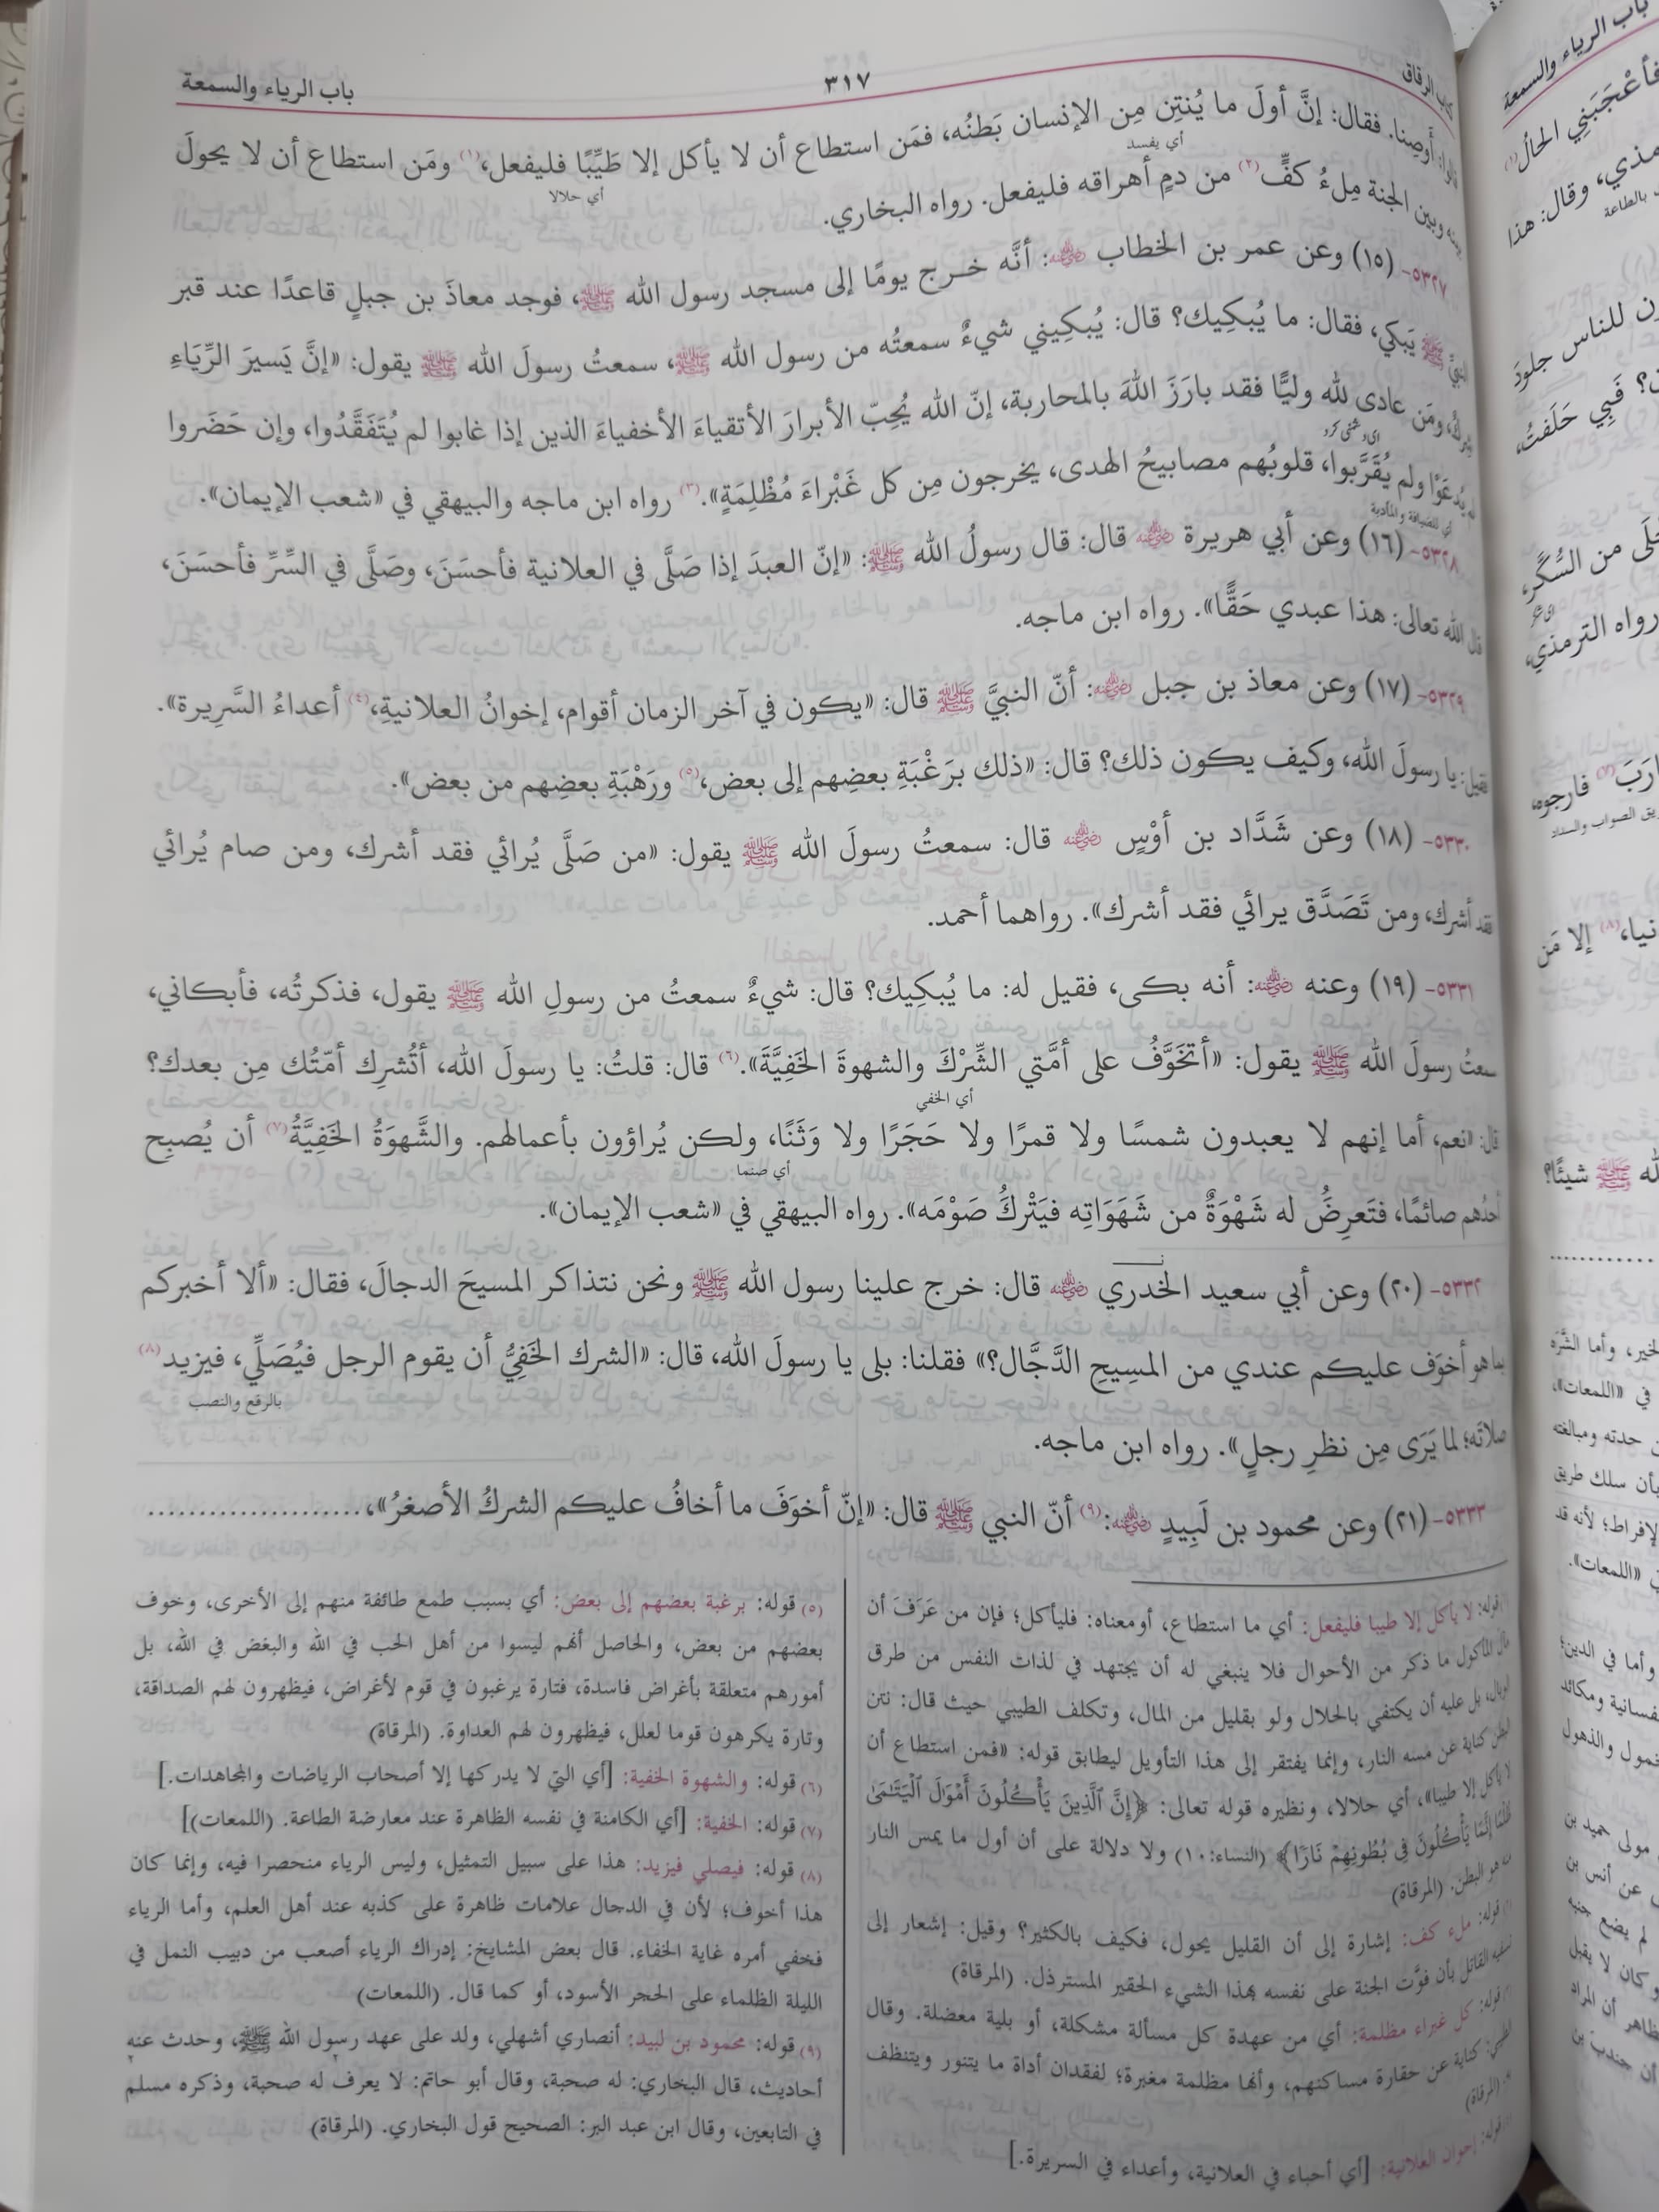 كتاب الرقاق
٣١٧
باب الرياء والسمعة
أوصِنا. فقال: إنَّ أولَ ما يُنتِن مِن الإنسان بَطنُه، فمَن استطاع أن لا يأكل إلا طَيِّبًا فليفعل،(١) ومَن استطاع أن لا يحولَ
أي يفسد
أي حلالا
بينه وبين الجنة مِلءُ كفٍّ(٢) من دمٍ أهراقه فليفعل. رواه البخاري.
٥٣٢٧- (١٥) وعن عمر بن الخطاب ﵁: أنَّه خرج يومًا إلى مسجد رسول الله ﷺ، فوجد معاذَ بن جبلٍ قاعدًا عند قبر
النبيِّ ﷺ يَبكي، فقال: ما يُبكِيك؟ قال: يُبكِيني شيءٌ سمعتُه من رسول الله ﷺ، سمعتُ رسولَ الله ﷺ يقول: «إنَّ يَسيرَ الرِّيَاءِ
شركٌ، ومَن عادى لله وليًّا فقد بارَزَ اللهَ بالمحاربة، إنّ الله يُحِبّ الأبرارَ الأتقياءَ الأخفياءَ الذين إذا غابوا لم يُتَفَقَّدُوا، وإن حَضَروا
لم يُدعَوْا ولم يُقَرَّبوا، قلوبُهم مصابيحُ الهدى، يخرجون مِن كل غَبْراءَ مُظْلِمَةٍ».(٣) رواه ابن ماجه والبيهقي في «شعب الإيمان».
أي للضيافة والمأدبة
٥٣٢٨- (١٦) وعن أبي هريرة ﵁ قال: قال رسولُ الله ﷺ: «إنّ العبدَ إذا صَلَّى في العلانية فأحسَنَ، وصَلَّى في السِّرِّ فأحسَنَ،
قال الله تعالى: هذا عبدي حَقًّا». رواه ابن ماجه.
٥٣٢٩- (١٧) وعن معاذ بن جبل ﵁: أنّ النبيَّ ﷺ قال: «يكون في آخر الزمان أقوام، إخوانُ العلانيةِ،(٤) أعداءُ السَّرِيرة».
فقيل: يا رسولَ الله، وكيف يكون ذلك؟ قال: «ذلك برَغْبَةِ بعضِهم إلى بعض،(٥) ورَهْبَةِ بعضِهم من بعض».
٥٣٣٠- (١٨) وعن شَدَّاد بن أوْسٍ ﵁ قال: سمعتُ رسولَ الله ﷺ يقول: «من صَلَّى يُرائي فقد أشرك، ومن صام يُرائي
فقد أشرك، ومن تَصَدَّق يرائي فقد أشرك». رواهما أحمد.
٥٣٣١- (١٩) وعنه ﵁: أنه بكى، فقيل له: ما يُبكِيك؟ قال: شيءٌ سمعتُ من رسولِ الله ﷺ يقول، فذكرتُه، فأبكاني،
سمعتُ رسولَ الله ﷺ يقول: «أتخَوَّفُ على أمَّتي الشِّرْكَ والشهوةَ الخَفِيَّةَ».(٦) قال: قلتُ: يا رسولَ الله، أتُشرِك أمّتُك مِن بعدك؟
أي الخفي
قال: «نعم، أما إنهم لا يعبدون شمسًا ولا قمرًا ولا حَجَرًا ولا وَثَنًا، ولكن يُراؤون بأعمالهم. والشَّهوَةُ الخَفِيَّةُ(٧) أن يُصبِح
أي صنما
أحدُهم صائمًا، فتَعرِضُ له شَهْوَةٌ من شَهَوَاتِه فيَتْركُ صَوْمَه». رواه البيهقي في «شعب الإيمان».
٥٣٣٢- (٢٠) وعن أبي سعيد الخدري ﵁ قال: خرج علينا رسول الله ﷺ ونحن نتذاكر المسيحَ الدجالَ، فقال: «ألا أخبركم
بما هو أخوَف عليكم عندي من المسِيحِ الدَّجَّال؟» فقلنا: بلى يا رسولَ الله، قال: «الشرك الخَفِيُّ أن يقوم الرجل فيُصَلِّي، فيزيد(٨)
بالرفع والنصب
صلاتَه؛ لما يَرَى مِن نظرِ رجلٍ». رواه ابن ماجه.
٥٣٣٣- (٢١) وعن محمود بن لَبِيدٍ ﵁:(٩) أنّ النبي ﷺ قال: «إنّ أخوَفَ ما أخافُ عليكم الشركُ الأصغرُ»، .....................
قوله: لا يأكل إلا طيبا فليفعل: أي ما استطاع، أومعناه: فليأكل؛ فإن من عَرَفَ أن
مآل المأكول ما ذكر من الأحوال فلا ينبغي له أن يجتهد في لذات النفس من طرق
الوبال، بل عليه أن يكتفي بالحلال ولو بقليل من المال، وتكلف الطيبي حيث قال: نتن
البطن كناية عن مسه النار، وإنما يفتقر إلى هذا التأويل ليطابق قوله: «فمن استطاع أن
لا يأكل إلا طيبا»، أي حلالا، ونظيره قوله تعالى: ﴿إِنَّ ٱلَّذِينَ يَأْكُلُونَ أَمْوَٰلَ ٱلْيَتَٰمَىٰ
ظُلْمًا إِنَّمَا يَأْكُلُونَ فِى بُطُونِهِمْ نَارًا﴾ (النساء:١٠) ولا دلالة على أن أول ما يمس النار
هو البطن. (المرقاة)
قوله: ملء كف: إشارة إلى أن القليل يحول، فكيف بالكثير؟ وقيل: إشعار إلى
تسفيه القاتل بأن فوَّت الجنة على نفسه بهذا الشيء الحقير المسترذل. (المرقاة)
قوله: كل غبراء مظلمة: أي من عهدة كل مسألة مشكلة، أو بلية معضلة. وقال
الطيبي: كناية عن حقارة مساكنهم، وأنها مظلمة مغبرة؛ لفقدان أداة ما يتنور ويتنظف
به. (المرقاة)
قوله: إخوان العلانية: [أي أحباء في العلانية، وأعداء في السريرة.]
(٥) قوله: برغبة بعضهم إلى بعض: أي بسبب طمع طائفة منهم إلى الأخرى، وخوف
بعضهم من بعض، والحاصل أنهم ليسوا من أهل الحب في الله والبغض في الله، بل
أمورهم متعلقة بأغراض فاسدة، فتارة يرغبون في قوم لأغراض، فيظهرون لهم الصداقة،
وتارة يكرهون قوما لعلل، فيظهرون لهم العداوة. (المرقاة)
(٦) قوله: والشهوة الخفية: [أي التي لا يدركها إلا أصحاب الرياضات والمجاهدات.]
(٧) قوله: الخفية: [أي الكامنة في نفسه الظاهرة عند معارضة الطاعة. (اللمعات)]
(٨) قوله: فيصلي فيزيد: هذا على سبيل التمثيل، وليس الرياء منحصرا فيه، وإنما كان
هذا أخوف؛ لأن في الدجال علامات ظاهرة على كذبه عند أهل العلم، وأما الرياء
فخفي أمره غاية الخفاء. قال بعض المشايخ: إدراك الرياء أصعب من دبيب النمل في
الليلة الظلماء على الحجر الأسود، أو كما قال. (اللمعات)
(٩) قوله: محمود بن لبيد: أنصاري أشهلي، ولد على عهد رسول الله ﷺ، وحدث عنه
أحاديث، قال البخاري: له صحبة، وقال أبو حاتم: لا يعرف له صحبة، وذكره مسلم
في التابعين، وقال ابن عبد البر: الصحيح قول البخاري. (المرقاة)
باب الرياء والسمعة
فأعْجَبَني الحالُ
وقال: هذا
بالطاعة
للناس جلودَ
فَبِي حَلَفتُ،
من السُّكَّرِ،
رواه الترمذي،
فارجوه،
الصواب والسداد
إلا مَن
ﷺ شيئًا؟
وأما الشَّرّة
في «اللمعات»،
حدته ومبالغته
بأن سلك طريق
لأنه قد
«اللمعات».
وأما في الدين؛
ومكائد
والذهول
مولى حميد بن
عن أنس بن
لم يضع جنبه
وكان لا يقبل
أن المراد
أن جندب بن